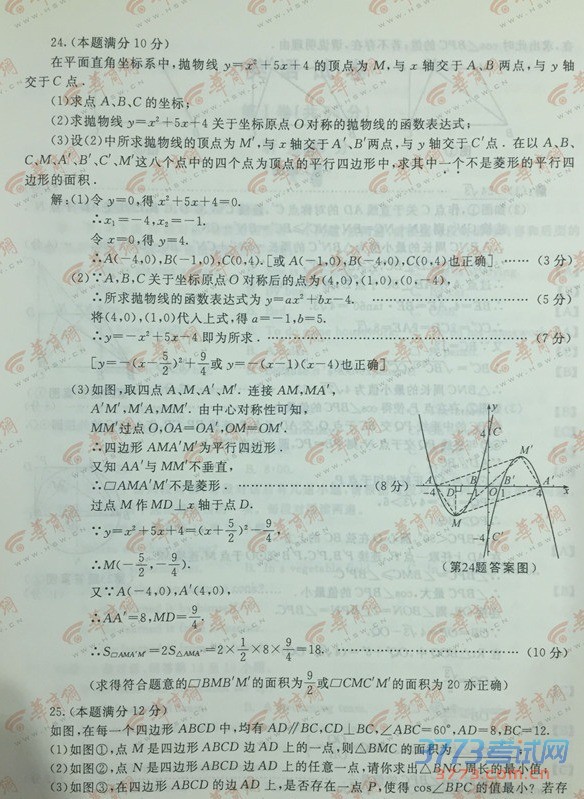 24.(本题满分10分)
在平面直角坐标系中,抛物线 y=x²+5x+4 的顶点为M,与 x 轴交于A、B两点,与 y 轴
交于C点.
(1)求点A、B、C的坐标;
(2)求抛物线 y=x²+5x+4 关于坐标原点O对称的抛物线的函数表达式;
(3)设(2)中所求抛物线的顶点为M′,与 x 轴交于A′、B′两点,与 y 轴交于C′点.在以A、B、
C、M、A′、B′、C′、M′这八个点中的四个点为顶点的平行四边形中,求其中一个不是菱形的平行四
边形的面积.
解:(1)令 y=0,得 x²+5x+4=0.
∴x₁=-4,x₂=-1.
令 x=0,得 y=4.
∴A(-4,0),B(-1,0),C(0,4).[或A(-1,0),B(-4,0),C(0,4)也正确] …… (3分)
(2)∵A,B,C关于坐标原点O对称后的点为(4,0),(1,0),(0,-4),
∴所求抛物线的函数表达式为 y=ax²+bx-4. …… (5分)
将(4,0),(1,0)代入上式,得 a=-1,b=5.
∴y=-x²+5x-4即为所求. …… (7分)
[y=-(x-5/2)²+9/4或 y=-(x-1)(x-4)也正确]
(3)如图,取四点A、M、A′、M′.连接AM,MA′,
A′M′,M′A,MM′.由中心对称性可知,
MM′过点O,OA=OA′,OM=OM′.
∴四边形AMA′M′为平行四边形.
又知AA′与MM′不垂直,
∴▱AMA′M′不是菱形. …… (8分)
过点M作MD⊥x轴于点D.
∵y=x²+5x+4=(x+5/2)²-9/4,
∴M(-5/2,-9/4).
又∵A(-4,0),A′(4,0),
∴AA′=8,MD=9/4.
∴S▱AMA′M′=2S△AMA′=2×1/2×8×9/4=18. …… (10分)
(求得符合题意的▱BMB′M′的面积为9/2或▱CMC′M′的面积为20亦正确)
y
4
C
M′
A
D
B
B′
A′
-4
-1
O
1
4
x
M
-4
C′
(第24题答案图)
25.(本题满分12分)
如图,在每一个四边形ABCD中,均有AD∥BC,CD⊥BC,∠ABC=60°,AD=8,BC=12.
(1)如图①,点M是四边形ABCD边AD上的一点,则△BMC的面积为
(2)如图②,点N是四边形ABCD边AD上的任意一点,请你求出△BNC周长的最小值;
(3)如图③,在四边形ABCD的边AD上,是否存在一点P,使得cos∠BPC的值最小?若存
3773考试网
3773.com.cn
华育网